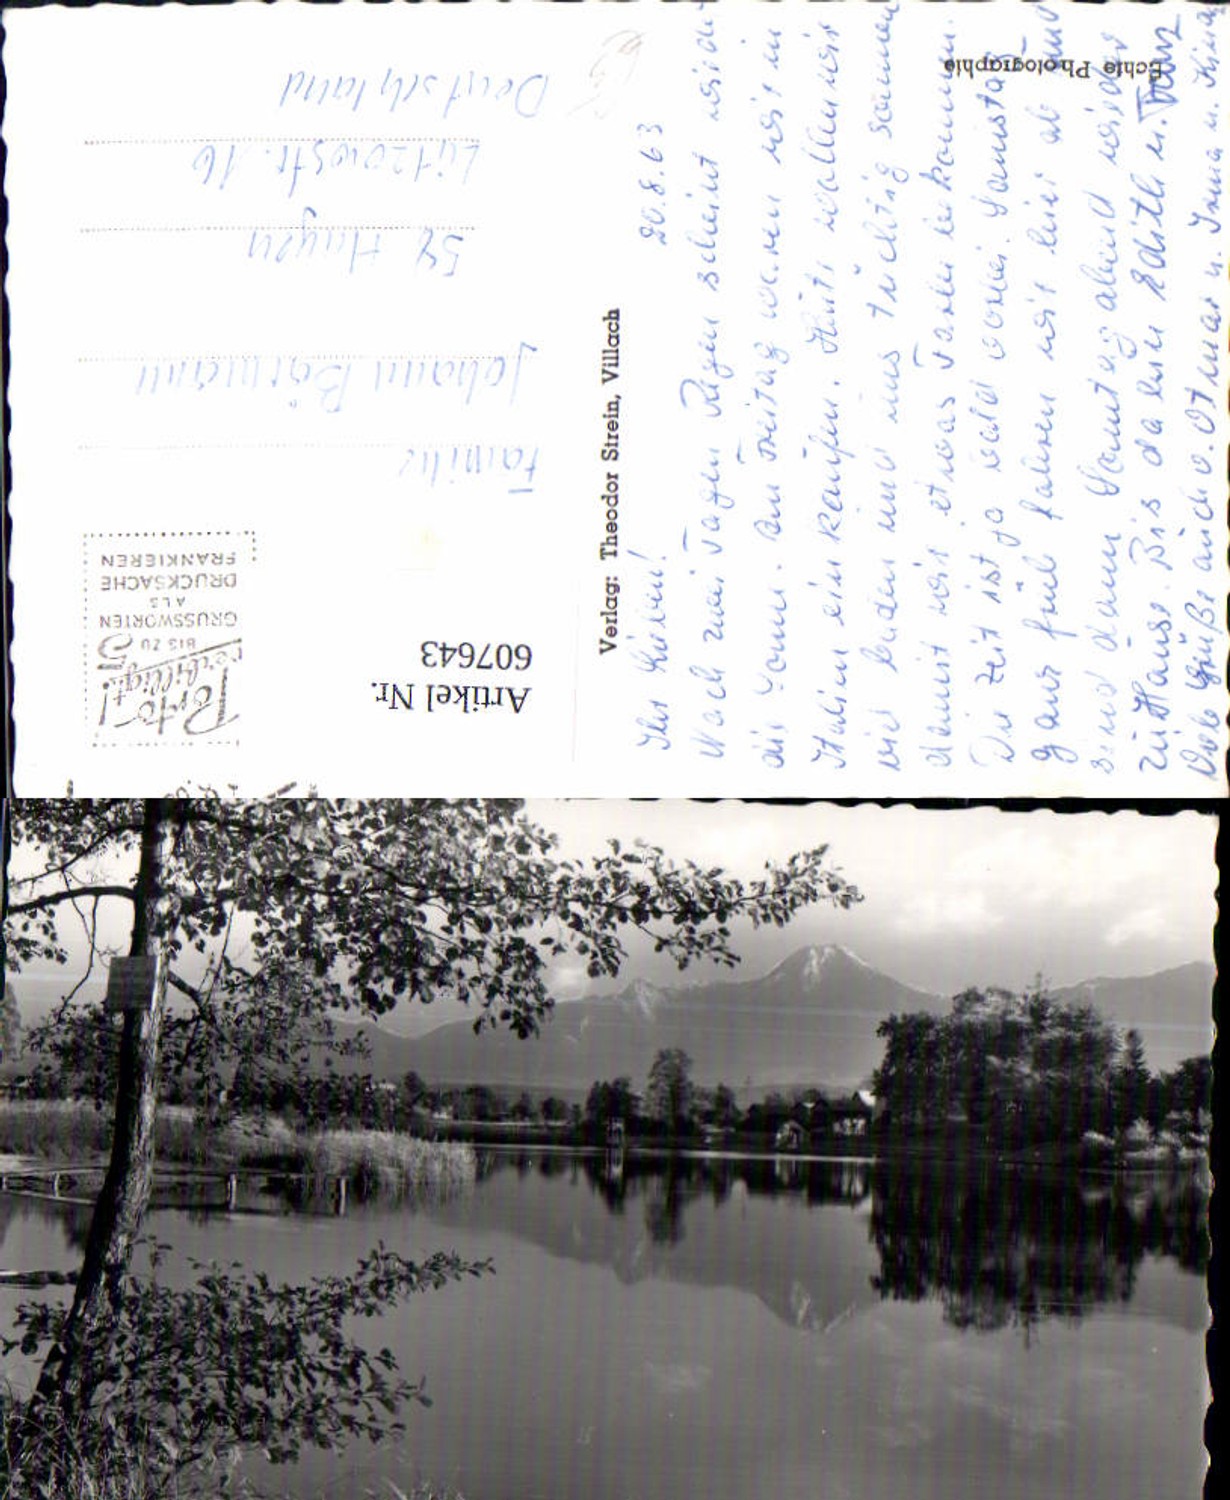 Ihr Lieben! 20.8.63
Nach zwei Tagen Regen scheint wieder
die Sonne. Am Freitag waren wir in
Italien einkaufen. Heute wollen wir
viel baden und uns tüchtig sonnen
damit wir etwas Farbe bekommen.
Die Zeit ist ja bald vorbei. Samstag
ganz früh fahren wir hier ab und
sind dann Sonntag abend wieder
zu Hause. Bis dahin Edith u. Franz
Viele Grüße auch v. Otmar u. Irma u.
Echte Photographie
Verlag: Theodor Strein, Villach
Artikel Nr.
607643
Porto-
verbilligt!
BIS ZU 5
GRUSSWORTEN
ALS
DRUCKSACHE
FRANKIEREN
Familie
Johann Bärmann
58 Hagen
Lützowstr. 16
Deutschland